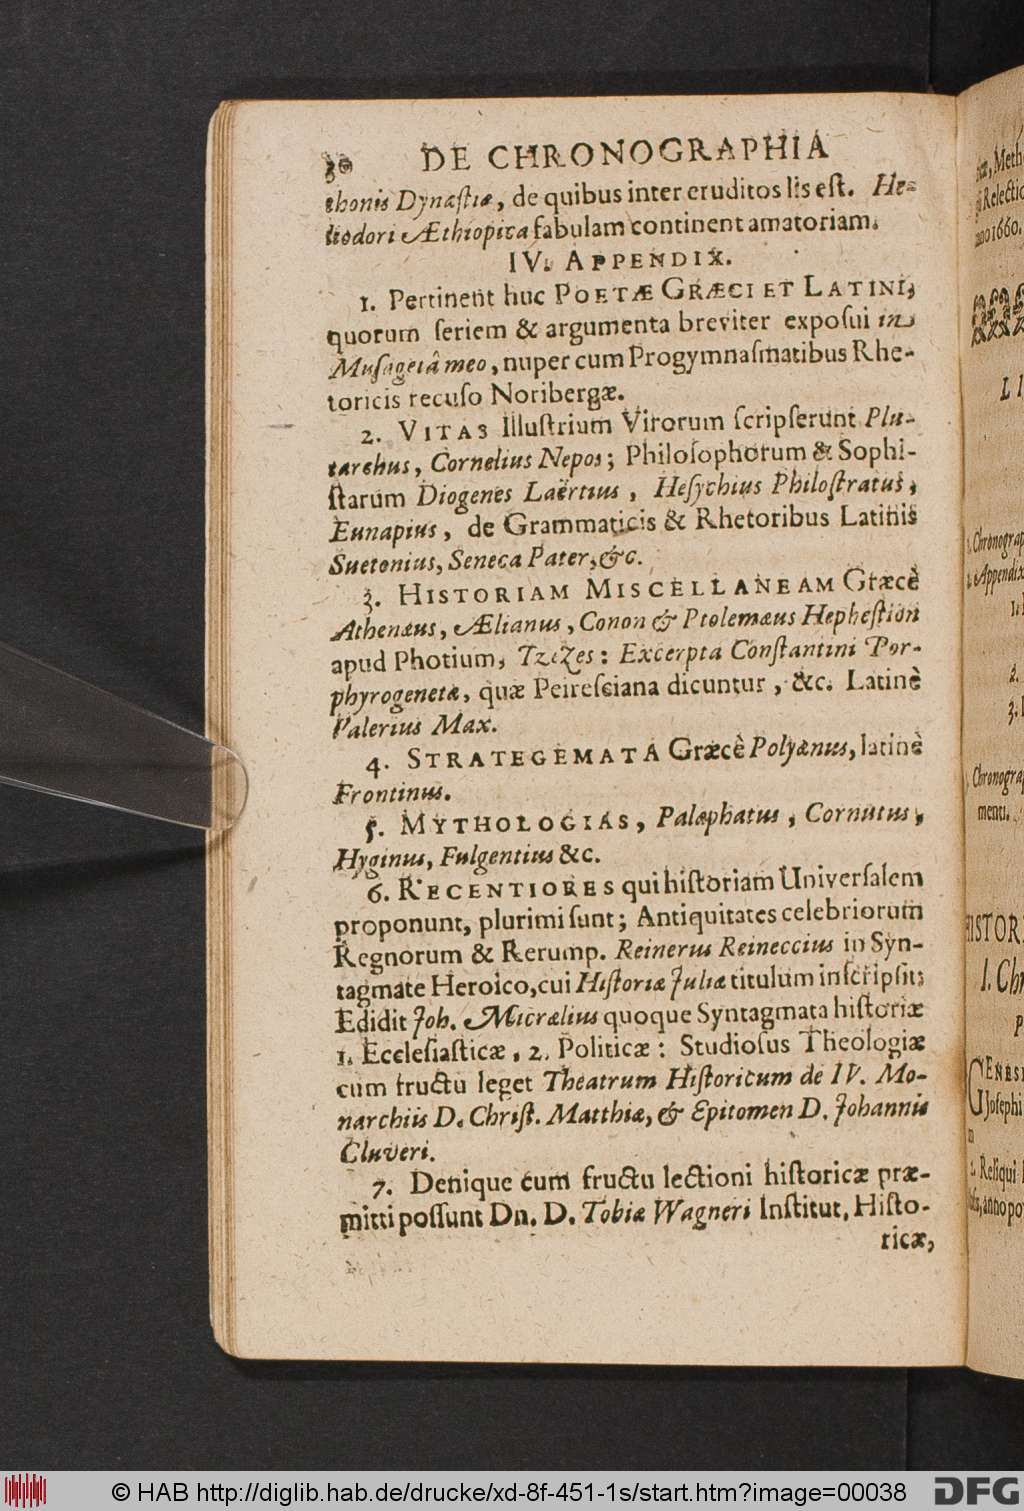 30 DE CHRONOGRAPHIA
thonis Dynaſtiæ, de quibus inter eruditos lis eſt. He-
liodori Æthiopica fabulam continent amatoriam.
IV. APPENDIX.
1. Pertinent huc POETÆ GRÆCI ET LATINI,
quorum ſeriem & argumenta breviter expoſui in
Muſagetâ meo, nuper cum Progymnaſmatibus Rhe-
toricis recuſo Noribergæ.
2. VITAS Illuſtrium Virorum ſcripſerunt Plu-
tarchus, Cornelius Nepos; Philoſophorum & Sophi-
ſtarum Diogenes Laërtius, Heſychius Philoſtratus,
Eunapius, de Grammaticis & Rhetoribus Latinis
Suetonius, Seneca Pater, &c.
3. HISTORIAM MISCELLANEAM Græcè
Athenæus, Ælianus, Conon & Ptolemæus Hepheſtion
apud Photium, Tzezes: Excerpta Conſtantini Por-
phyrogenetæ, quæ Peireſciana dicuntur, &c. Latinè
Valerius Max.
4. STRATEGEMATA Græcè Polyænus, latinè
Frontinus.
5. MYTHOLOGIAS, Palæphatus, Cornutus,
Hyginus, Fulgentius &c.
6. RECENTIORES qui hiſtoriam Univerſalem
proponunt, plurimi ſunt; Antiquitates celebriorum
Regnorum & Rerump. Reinerus Reineccius in Syn-
tagmate Heroico, cui Hiſtoriæ Juliæ titulum inſcripſit;
Edidit Joh. Micrælius quoque Syntagmata hiſtoriæ
1. Eccleſiaſticæ, 2. Politicæ: Studioſus Theologiæ
cum fructu leget Theatrum Hiſtoricum de IV. Mo-
narchiis D. Chriſt. Matthiæ, & Epitomen D. Johannis
Cluveri.
7. Denique cum fructu lectioni hiſtoricæ præ-
mitti poſſunt Dn. D. Tobiæ Wagneri Inſtitut. Hiſto-
ricæ,
Meth
Relectio
anno 1660.
L I
Chronograp
Appendix
2.
3.
Chronogra
menti.
HISTOR
I. Chr
P
GENESI
Joſephi
2. Reliqui
anno po
© HAB http://diglib.hab.de/drucke/xd-8f-451-1s/start.htm?image=00038
DFG